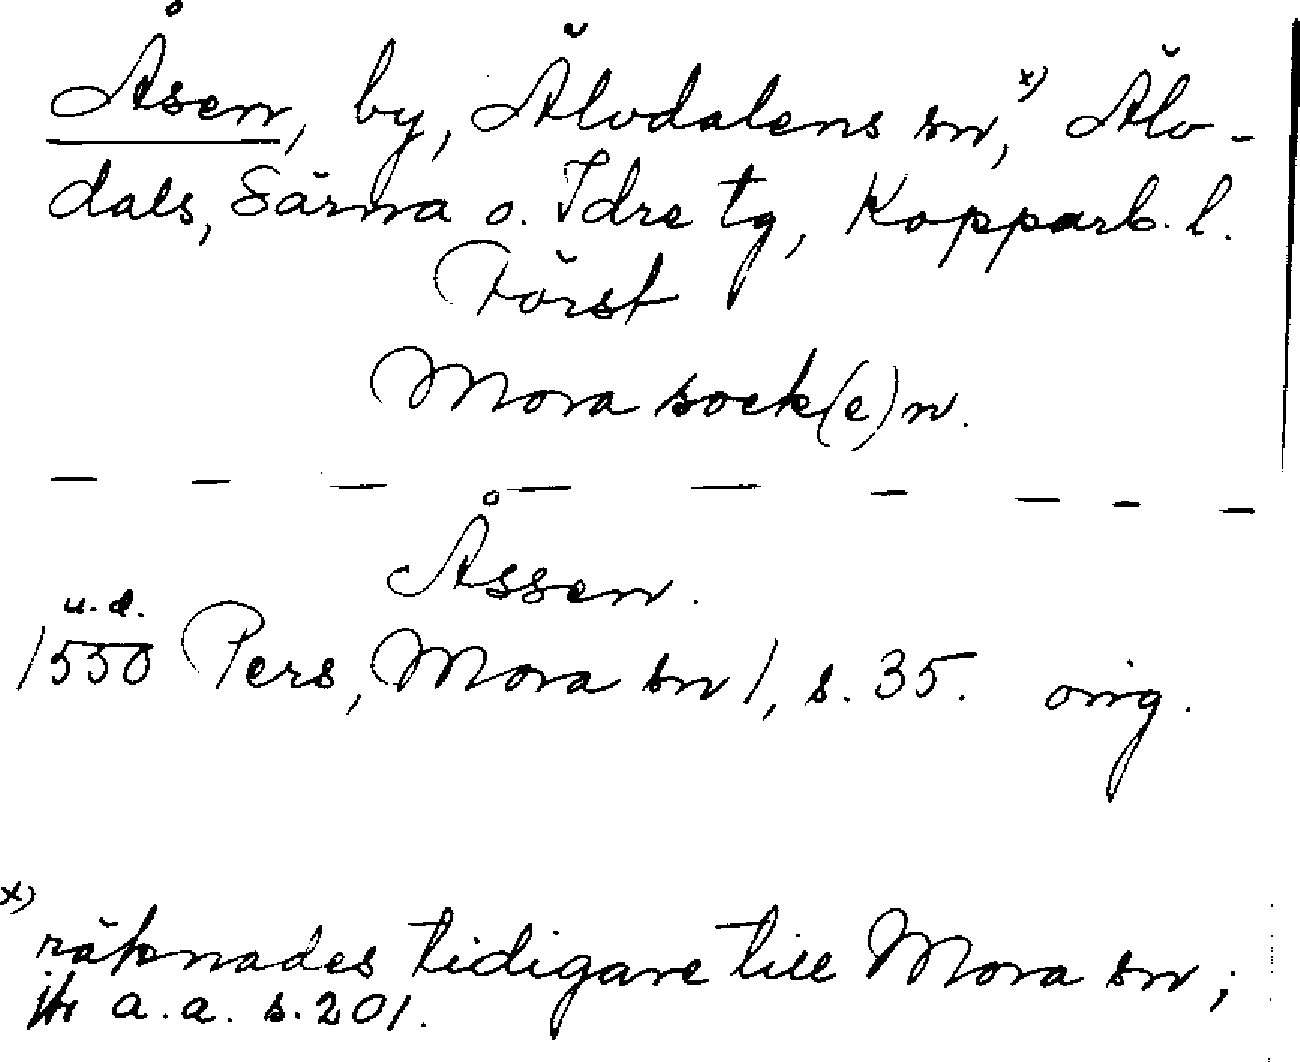 Åsen, by, Älvdalens sn,x) Älv-
dals, Särna o. Idre tg, Kopparb. l.
Först
Mora sock(e)n.
— — — — — — — — —
Åssen.
u. d.
1550 Pers, Mora sn 1, s. 35. orig.
x)
räknades tidigare till Mora sn;
jfr a. a. s. 201.